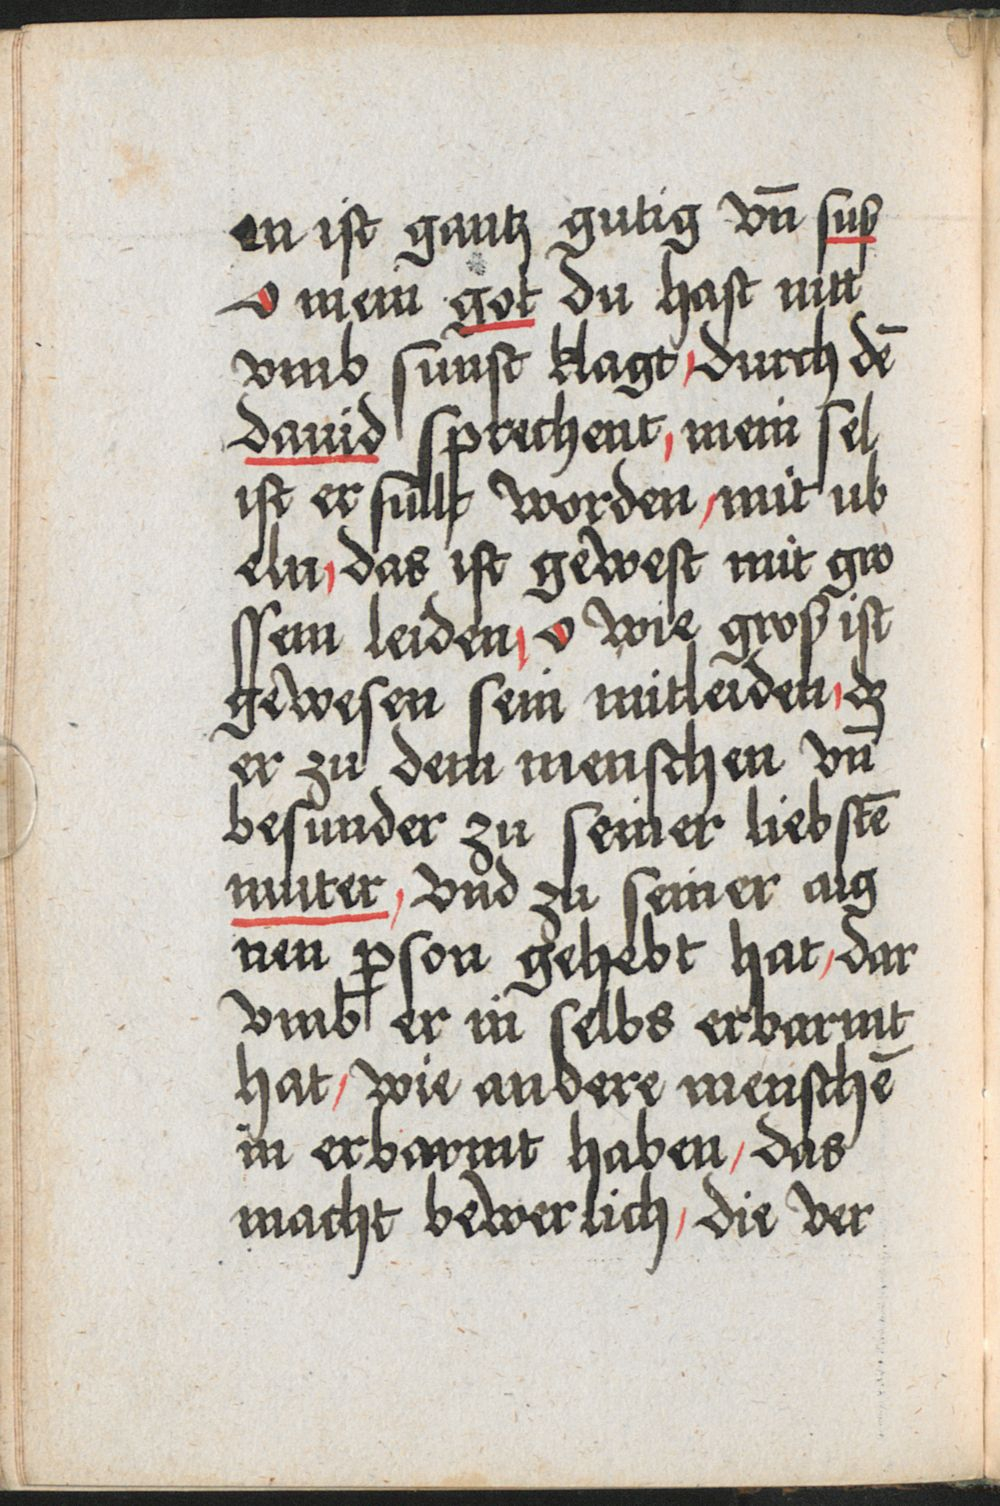 en ist gantz gutig vn̄ suß
o mein got du hast nitt
vmb sunst klagt / durch dē
dauid sprechent / mein sel
ist erfult worden / mit ub
eln / das ist gewest mit gro
ssem leiden / o wie groß ist
gewesen sein mitleiden / dz
er zu dem menschen vn̄
besunder zu seiner liebstē
muter / vnd zu seiner aig
nen ꝑson gehebt hat / dar
vmb er in selbs erbarmt
hat / wie andere menschē
in erbarmt haben / das
macht bewerlich / die ver